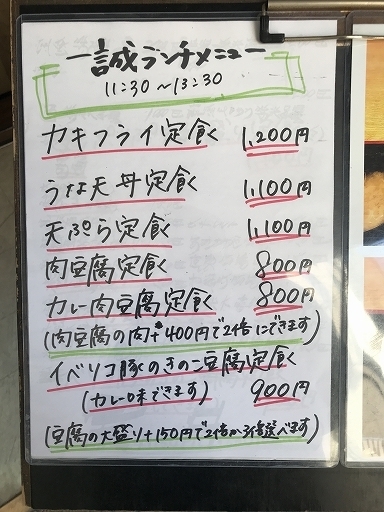 一誠ランチメニュー
11:30〜13:30
カキフライ定食 1,200円
うな天丼定食 1,100円
天ぷら定食 1,100円
肉豆腐定食 800円
カレー肉豆腐定食 800円
(肉豆腐の肉+400円で2倍にできます)
イベリコ豚のきのこ豆腐定食
(カレー味できます) 900円
(豆腐の大盛り+150円で2倍か3倍選べます)